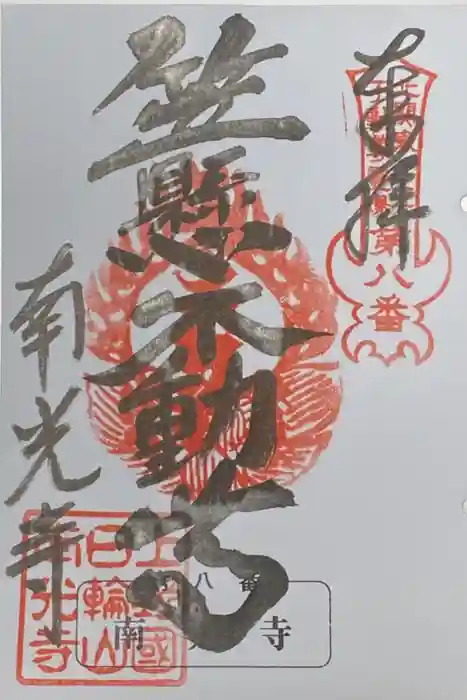 奉拝
第八番
笠懸不動尊
南光寺
上野國
日輪山
南光寺
第八番
南光寺